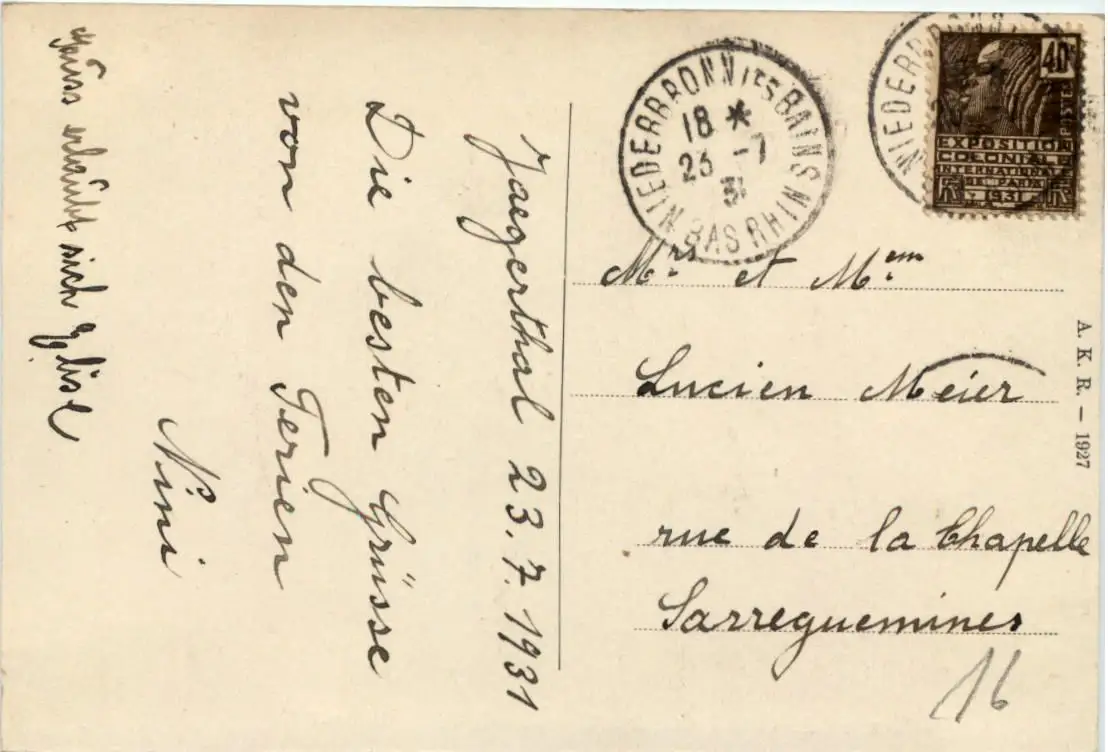 Jaegerthal 23.7.1931
Die besten Grüsse
von den Ferien
Nini
erlaubt sich
NIEDERBRONN LES BAINS
BAS RHIN
18 *
23 -7
31
NIEDERBRONN
40
EXPOSITION
COLONIALE
INTERNATIONALE
PARIS
1931
Mrs et Mem
Lucien Meier
rue de la Chapelle
Sarreguemines
16
A. K. R. — 1927